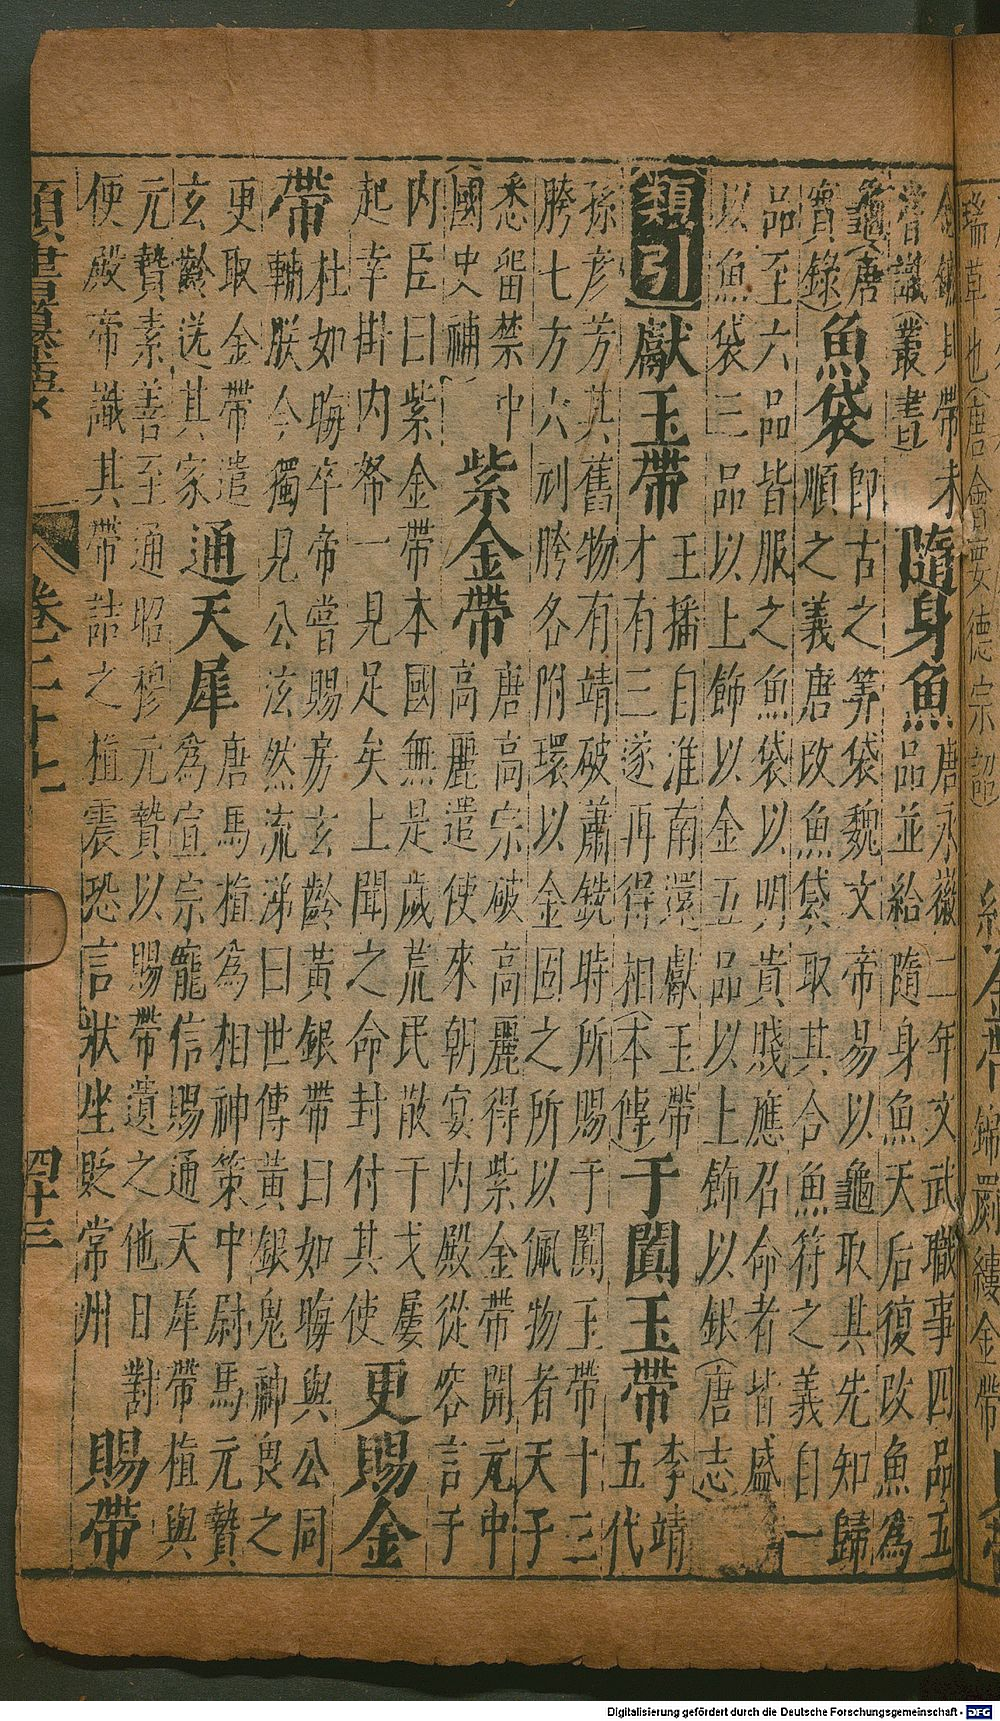 瑞草也(唐會要德宗詔
錦罽縷金帶
嘗識(叢書
隨身魚
唐永徽二年文武職事四品五
品並給隨身魚天后復改魚為
龜(唐
實錄)
魚袋
即古之筭袋魏文帝易以龜取其先知歸
順之義唐改魚袋取其合魚符之義自一
品至六品皆服之魚袋以明貴賤應召命者皆盛
以魚袋三品以上飾以金五品以上飾以銀(唐志)
類引
獻玉帶
王播自淮南還獻玉帶
才有三遂再得相(本傳)
于闐玉帶
李靖
五代
孫彥芳其舊物有靖破蕭銑時所賜于闐玉帶十三
胯七方六刓胯各附環以金固之所以佩物者天子
悉留禁中
國史補
紫金帶
唐高宗破高麗得紫金帶開元中
高麗遣使來朝宴内殿從容言于
内臣曰紫金帶本國無是歲荒民散干戈屢
起幸掛内帑一見足矣上聞之命封付其使
更賜金
帶
杜如晦卒帝嘗賜房玄齡黃銀帶曰如晦與公同
輔朕今獨見公泫然流涕曰世傳黃銀鬼神畏之
更取金帶遣
玄齡送其家
通天犀
唐馬植為相神策中尉馬元贄
為宣宗寵信賜通天犀帶植與
元贄素善至通昭穆元贄以賜帶遺之他日對
便殿帝識其帶詰之植震恐言狀坐貶常州
賜帶
卷二十七
四十三
Digitalisierung gefördert durch die Deutsche Forschungsgemeinschaft - DFG